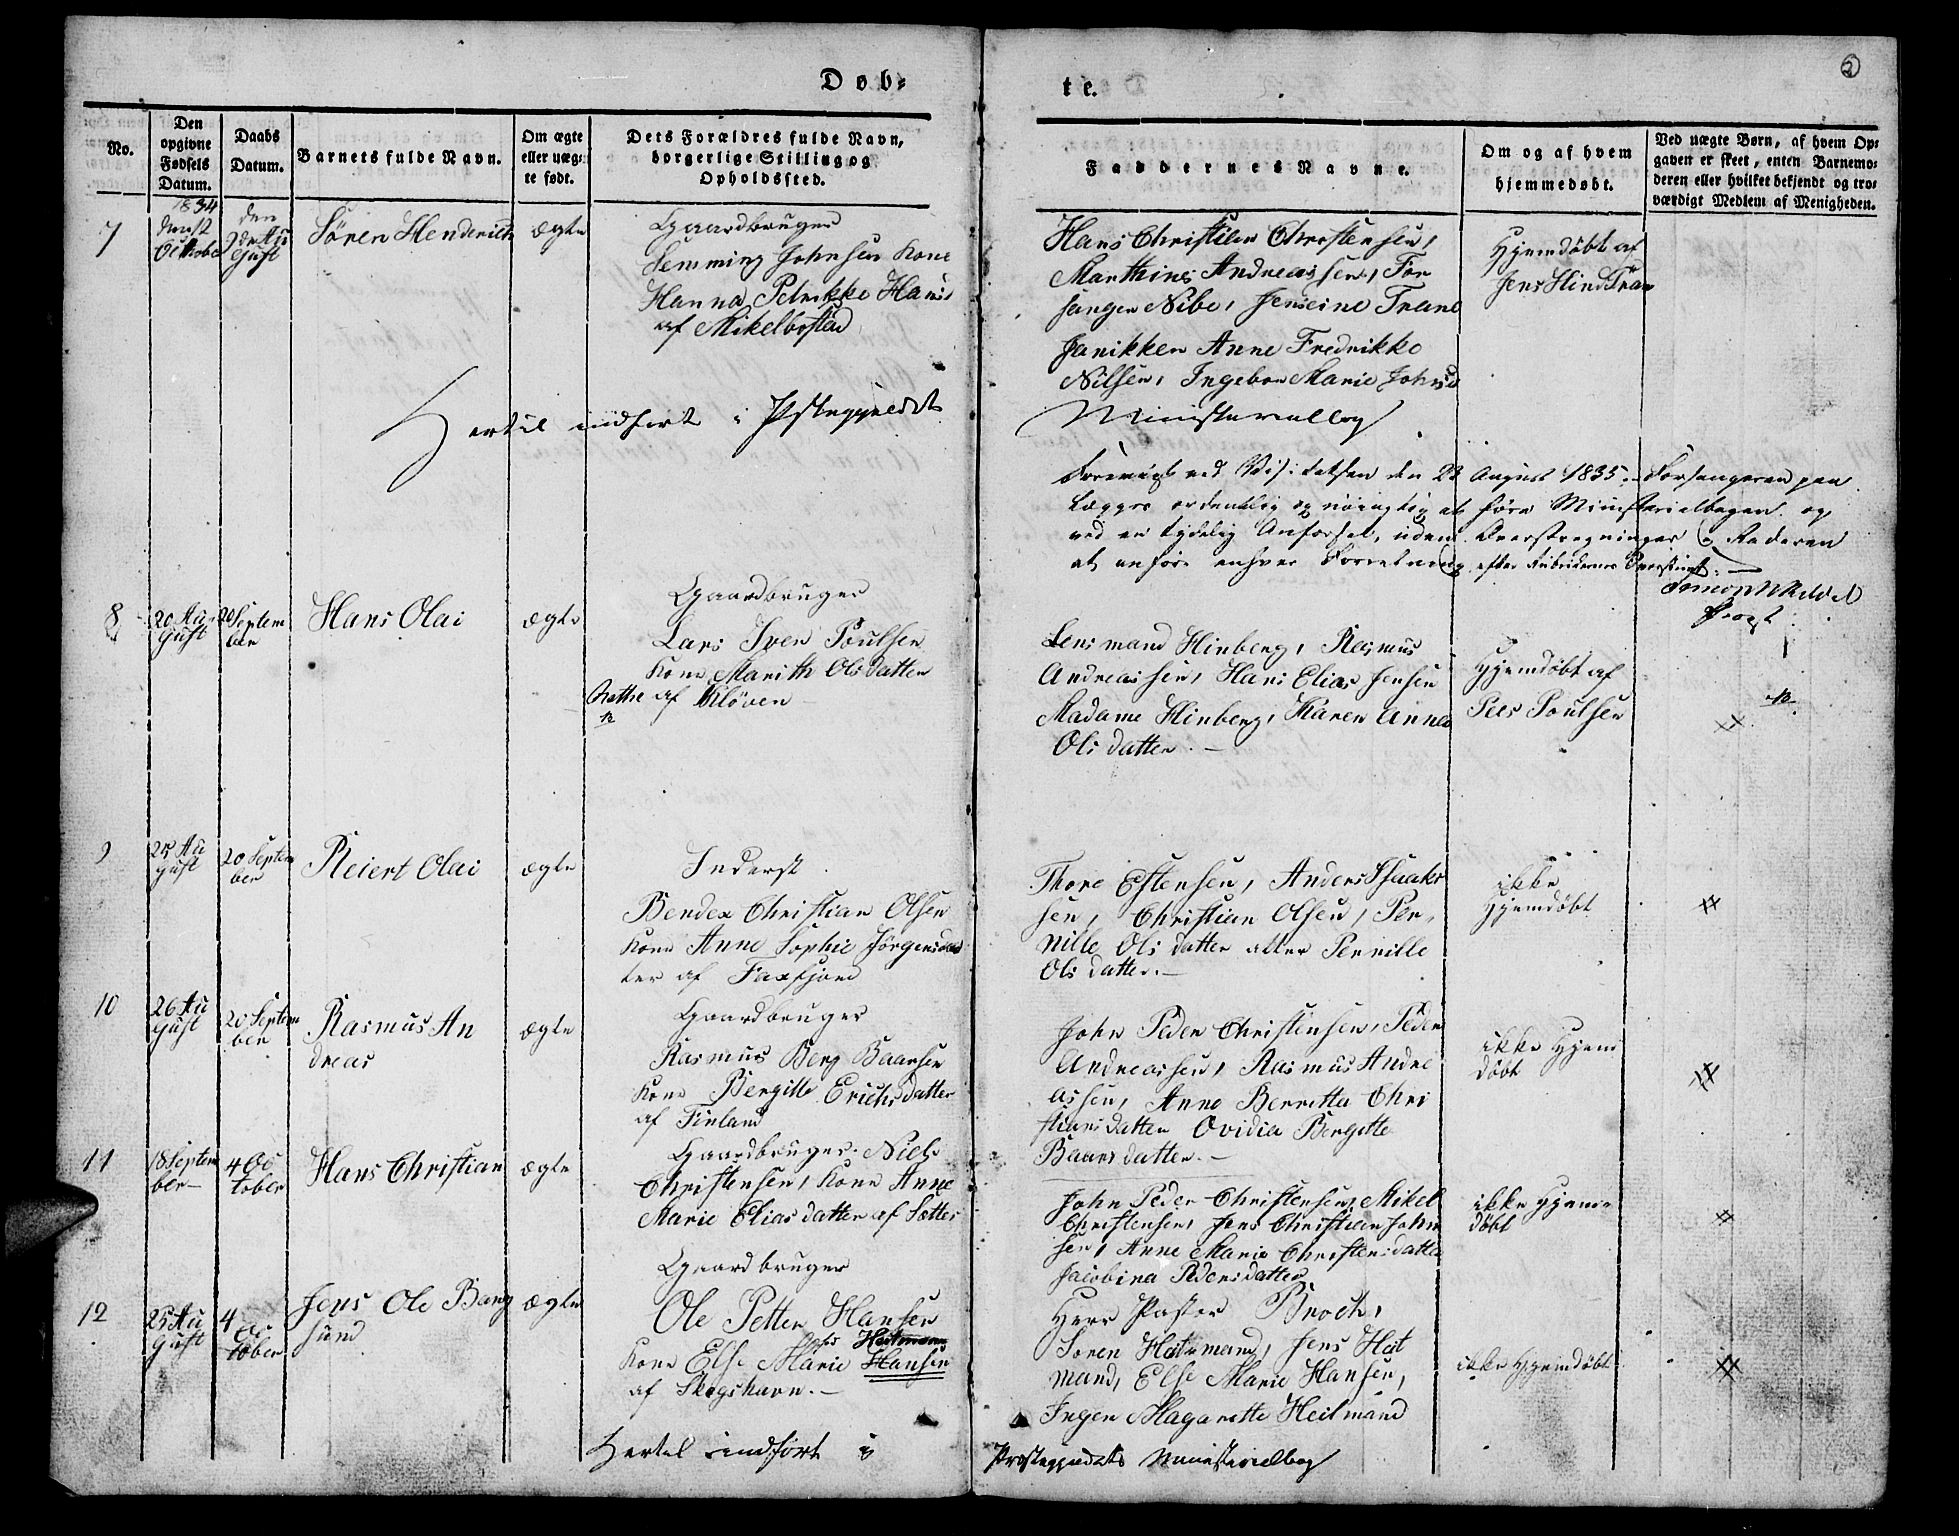 Døb-
te.
2
No.
Den opgivne Fødsels Datum.
Daabs Datum.
Barnets fulde Navn.
Om ægte eller uægte født.
Dets Forældres fulde Navn, borgerlige Stilling og Opholdssted.
Faddernes Navne.
Om og af hvem hjemmedøbt.
Ved uægte Børn, af hvem Opgaven er skeet, enten Barnemoderen eller hvilket bekjendt og troværdigt Medlem af Menigheden.
7
1834
den 12
October
den
9de Au
gust
Søren Henderich
ægte
Gaardbruger
Hemming Johnsen Kone
Hanna Petrikke Hans
af Mikelbostad
Hans Christian Christensen,
Marthines Andreassen, For
sanger Nibe, Jenseine Trane
Janikken Anne Fredrikke
Nilsen, Ingebor Marie Johnsd
Hjemdøbt af
Jens Hind Tran
Hertil indført i Præstegjeldets
Ministerialbog
Foreviist ved Visitatsen den 23 August 1835. Forsangeren paa
lægges ordentlig og nøiagtig at føre Ministerialbogen og
ved en tydelig Anførsel, uden Overstregninger og Raderen
at anføre enhver Forretning efter Rubrikernes Overskrift.
Simon Kildal
Provst
8
20 Au
gust
20 Septem
ber
Hans Olai
ægte
Gaardbruger
Lars Iver Poulsen
Kone Marith Olsdatter
af Kløven
Lensmand Hinberg, Rasmus
Andreassen, Hans Elias Jensen
Madame Hinberg, Karen Anna
Olsdatter.
Hjemdøbt af
Peer Poulsen
9
25 Au
gust
20 Septem
ber
Reiert Olai
ægte
Inderst
Bendex Christian Olsen
Kone Anne Sophie Jørgensdat
ter af Faxfjord
Thore Estensen, Anders Isaak
sen, Christian Olsen, Per
nille Olsdatter atter Pernille
Olsdatter.
ikke
Hjemdøbt
10
26 Au
gust
20 Septem
ber
Rasmus An
dreas
ægte
Gaardbruger
Rasmus Berg Baarsen
Kone Bergitte Erichsdatter
af Finland
John Peder Christensen, Peder
Andreassen, Rasmus Andre
assen, Anne Berretta Chri
stiansdatter Ovidia Bergitte
Baarsdatter.
ikke Hjem
døbt
11
18 Septem
ber
4 Oc
tober
Hans Christian
ægte
Gaardbruger Niels
Christensen, Kone Anne
Marie Eliasdatter af Sætter
John Peder Christensen, Mikel
Christensen, Jens Christian John
sen, Anne Marie Christensdatter
Jacobina Pedersdatter
ikke Hjem
døbt
12
25 Au
gust
4
Oc
tober
Jens Ole Bang
sund
ægte
Gaardbruger
Ole Petter Hansen
Heitmann
Kone Else Marie Hansen
af Skogshavn.
Herr Pastor Broch,
Søren Hatmand, Jens Hat
mand, Else Marie Hansen,
Inger Magarette Heitmand
ikke Hjemdøbt
Hertil indført i
Præstegjeldets Ministerialbog